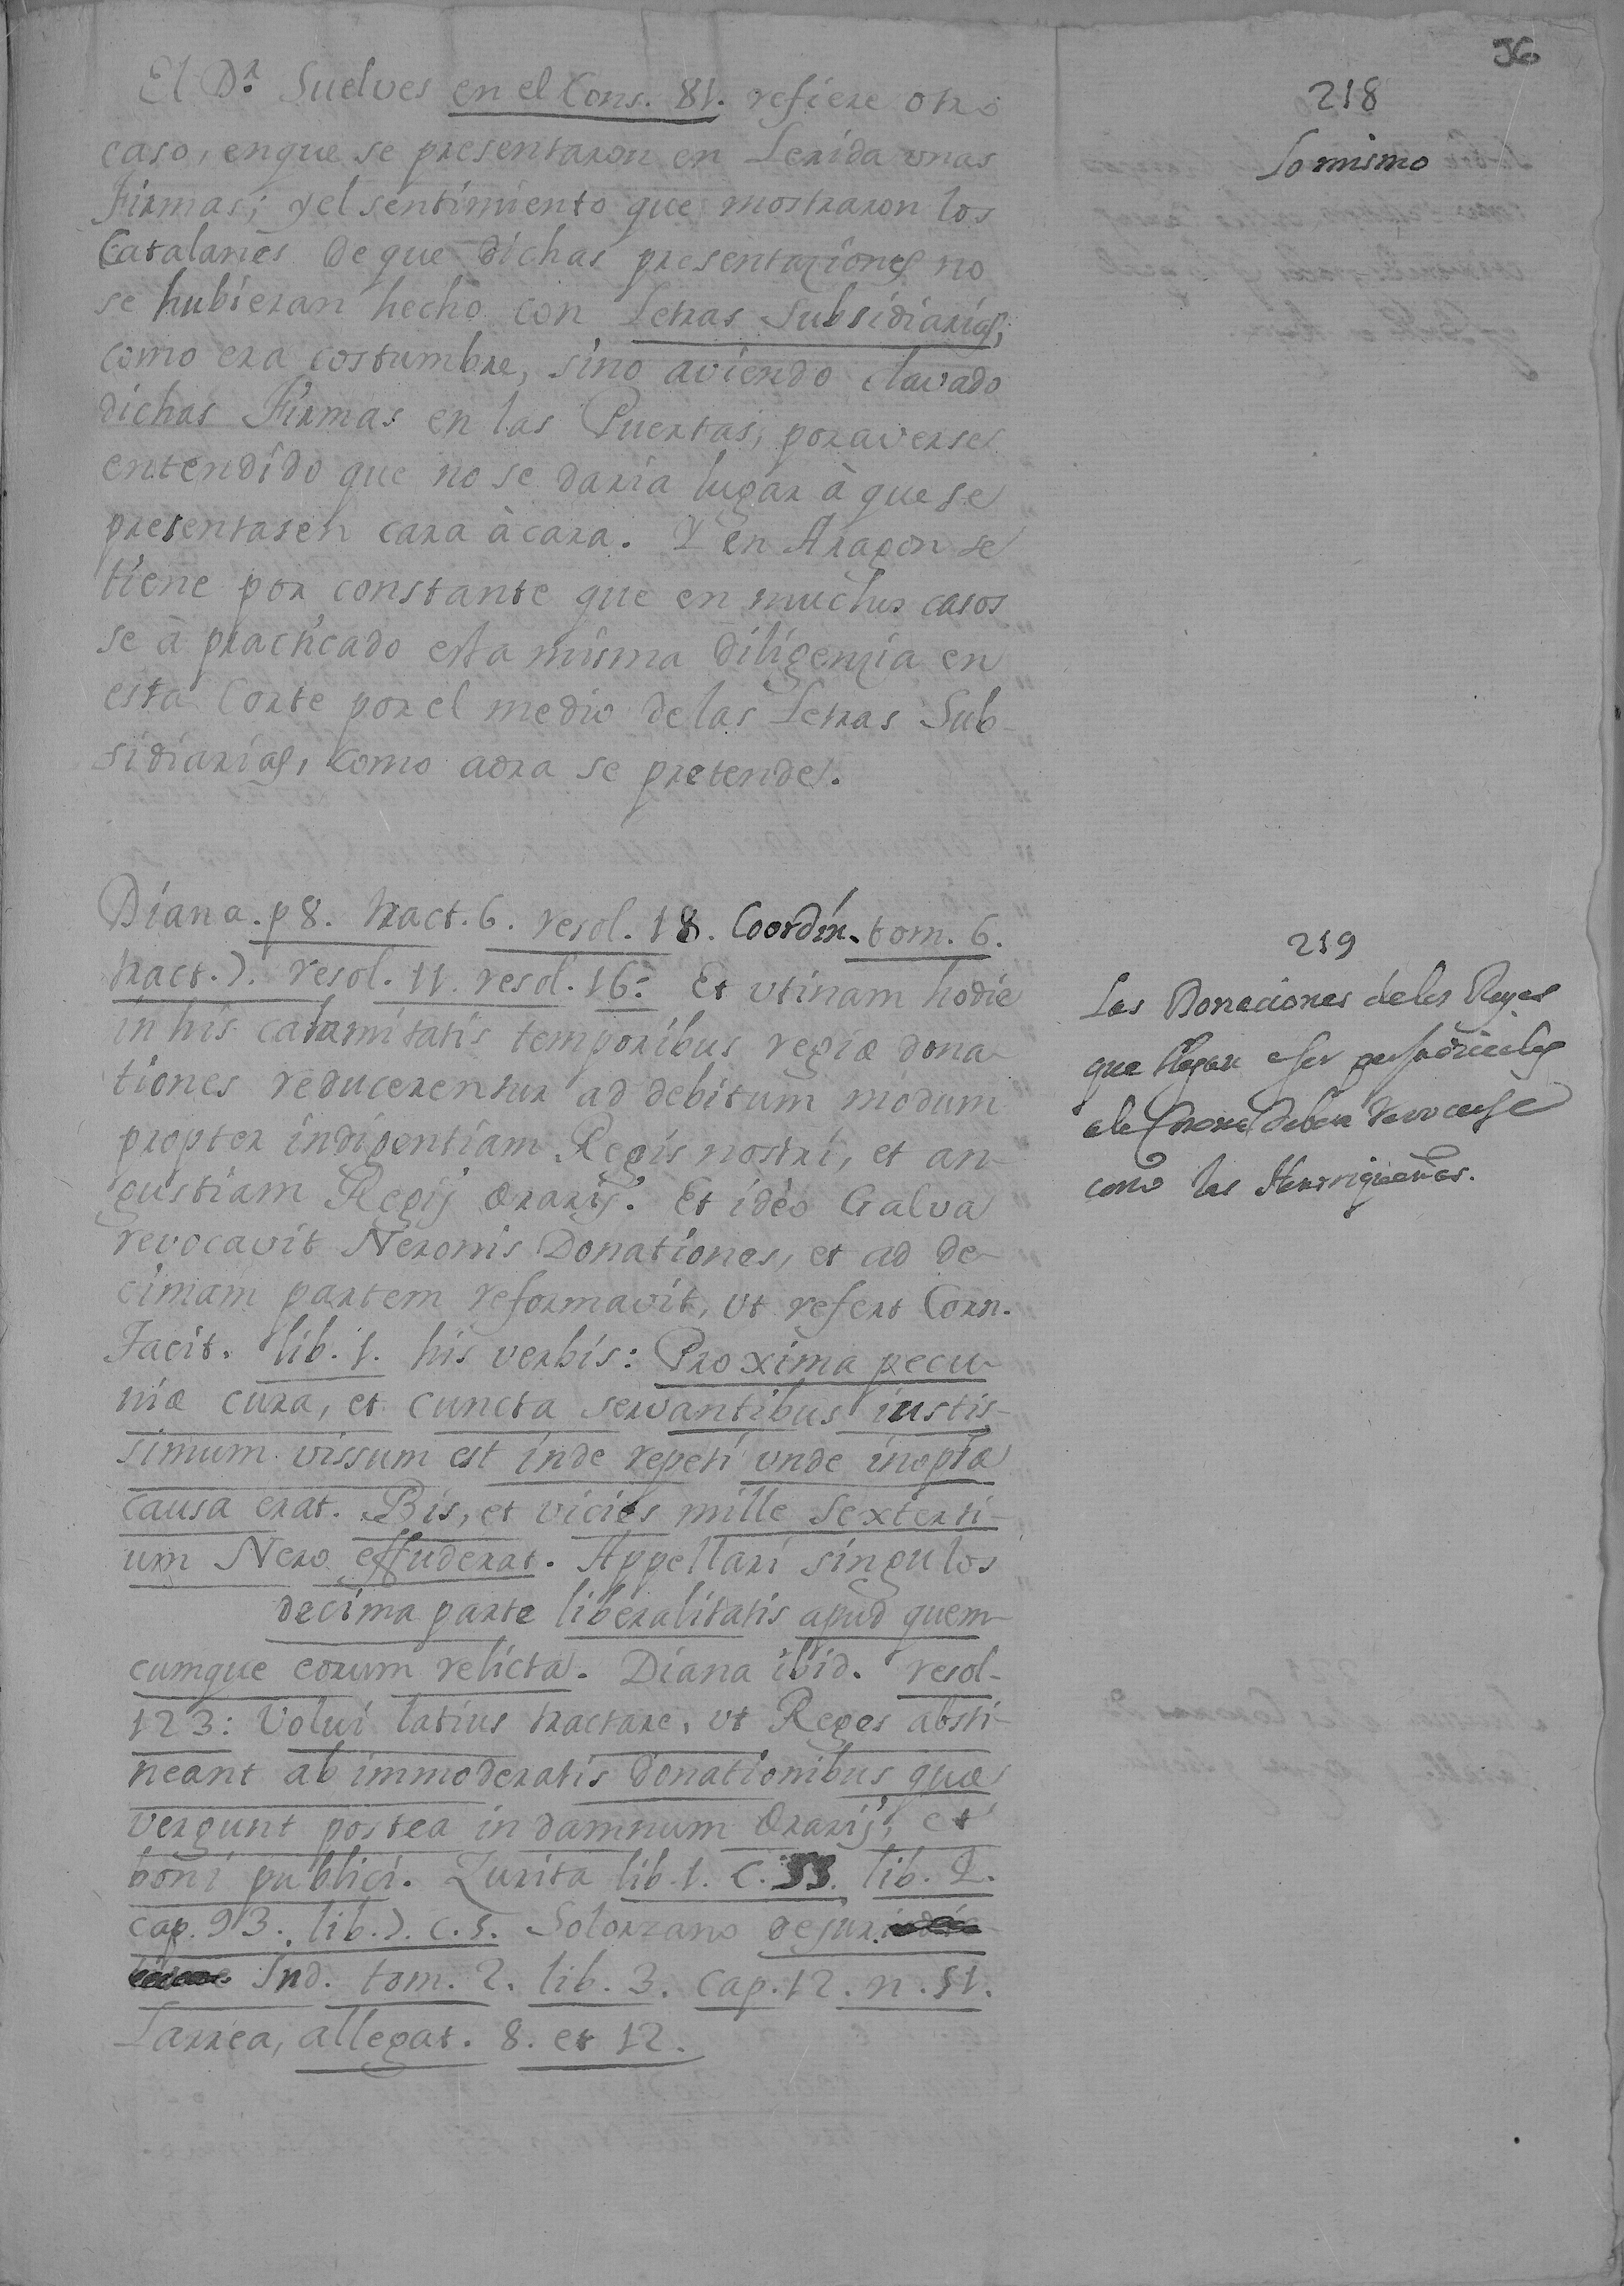 56
El D.r Suelves en el Cons. 81. refiere otro
caso, enque se presentaron en Lerida unas
Firmas; y el sentimiento que mostraron los
Catalanes de que dichas presentaziones no
se hubieran hecho con Letras Subsidiarias,
como era costumbre, sino aviendo clavado
dichas Firmas en las Puertas, por averse
entendido que no se daria lugar à que se
presentasen cara à cara. Y en Aragon se
tiene por constante que en muchos casos
se à practicado esta misma diligenzia en
esta Corte por el medio de las Letras Sub-
sidiarias, como aora se pretende.
218
Lo mismo
Diana. p 8. tract. 6. resol. 18. Coordin. tom. 6.
tract. 7. resol. 11. resol. 16: Et utinam hodie
in his calamitatis temporibus regiæ dona-
tiones reducerentur ad debitum modum
propter indigentiam Regis nostri, et an-
gustiam Regij Ærarij. Et ideo Galva
revocavit Neronis Donationes, et ad de-
cimam partem reformavit, ut refert Corn.
Tacit. lib. 1. his verbis: Proxima pecu-
niæ cura, et cuncta servantibus iustis-
simum vissum est inde repeti unde inopiæ
causa erat. Bis, et vicies mille Sexterti-
um Nero effuderat. Appellari singulos
decima parte liberalitatis apud quem-
cumque eorum relicta. Diana ibid. resol-
123: Volui latius tractare, ut Reges absti-
neant ab immoderatis donationibus quæ
vergunt postea in damnum Ærarij, et
boni publici. Zurita lib. 1. c. 55. lib. 2.
cap. 93. lib. 7. c. 5. Solorzano de jur.
Ind. tom. 2. lib. 3. cap. 12. n. 51.
Larrea, allegat. 8. et 12.
219
Las Donaciones de los Reyes
que llegan a ser perjudiciales
a la Corona deben revocarse
como las Henriqueñas.